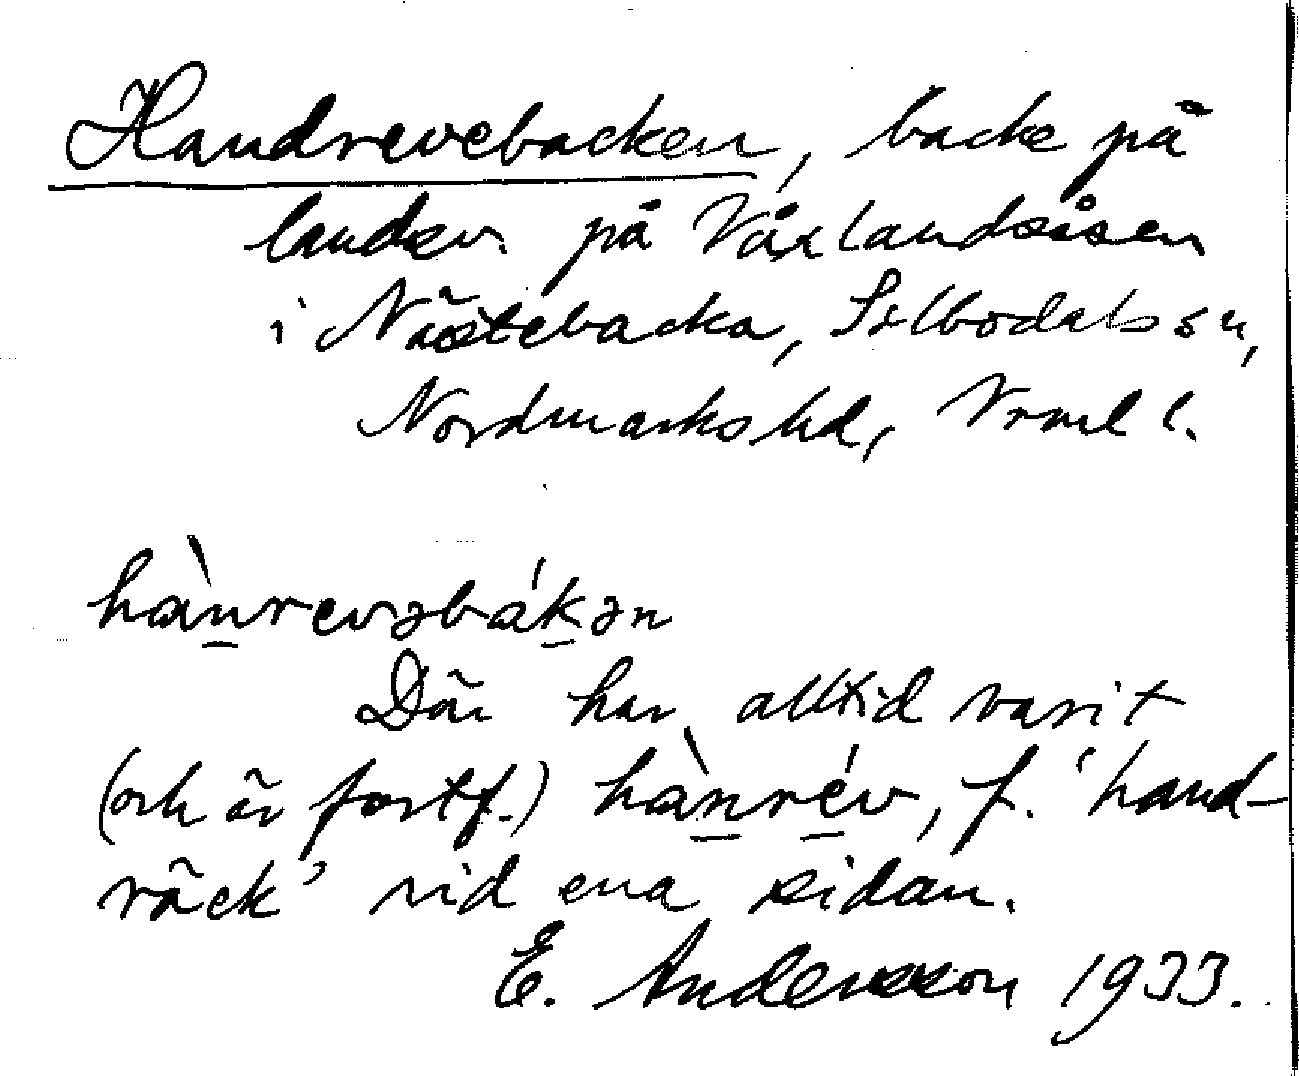 Handrevebacken, backe på
landsv. på Våxlandsåsen
i Nästebacka, Silbodals sn,
Nordmarks hd, Vrml l.
hànrevəbákən
Där har alltid varit
(och är fortf.) hànrév, f. 'hand-
räck' vid ena sidan.
E. Andersson 1933.